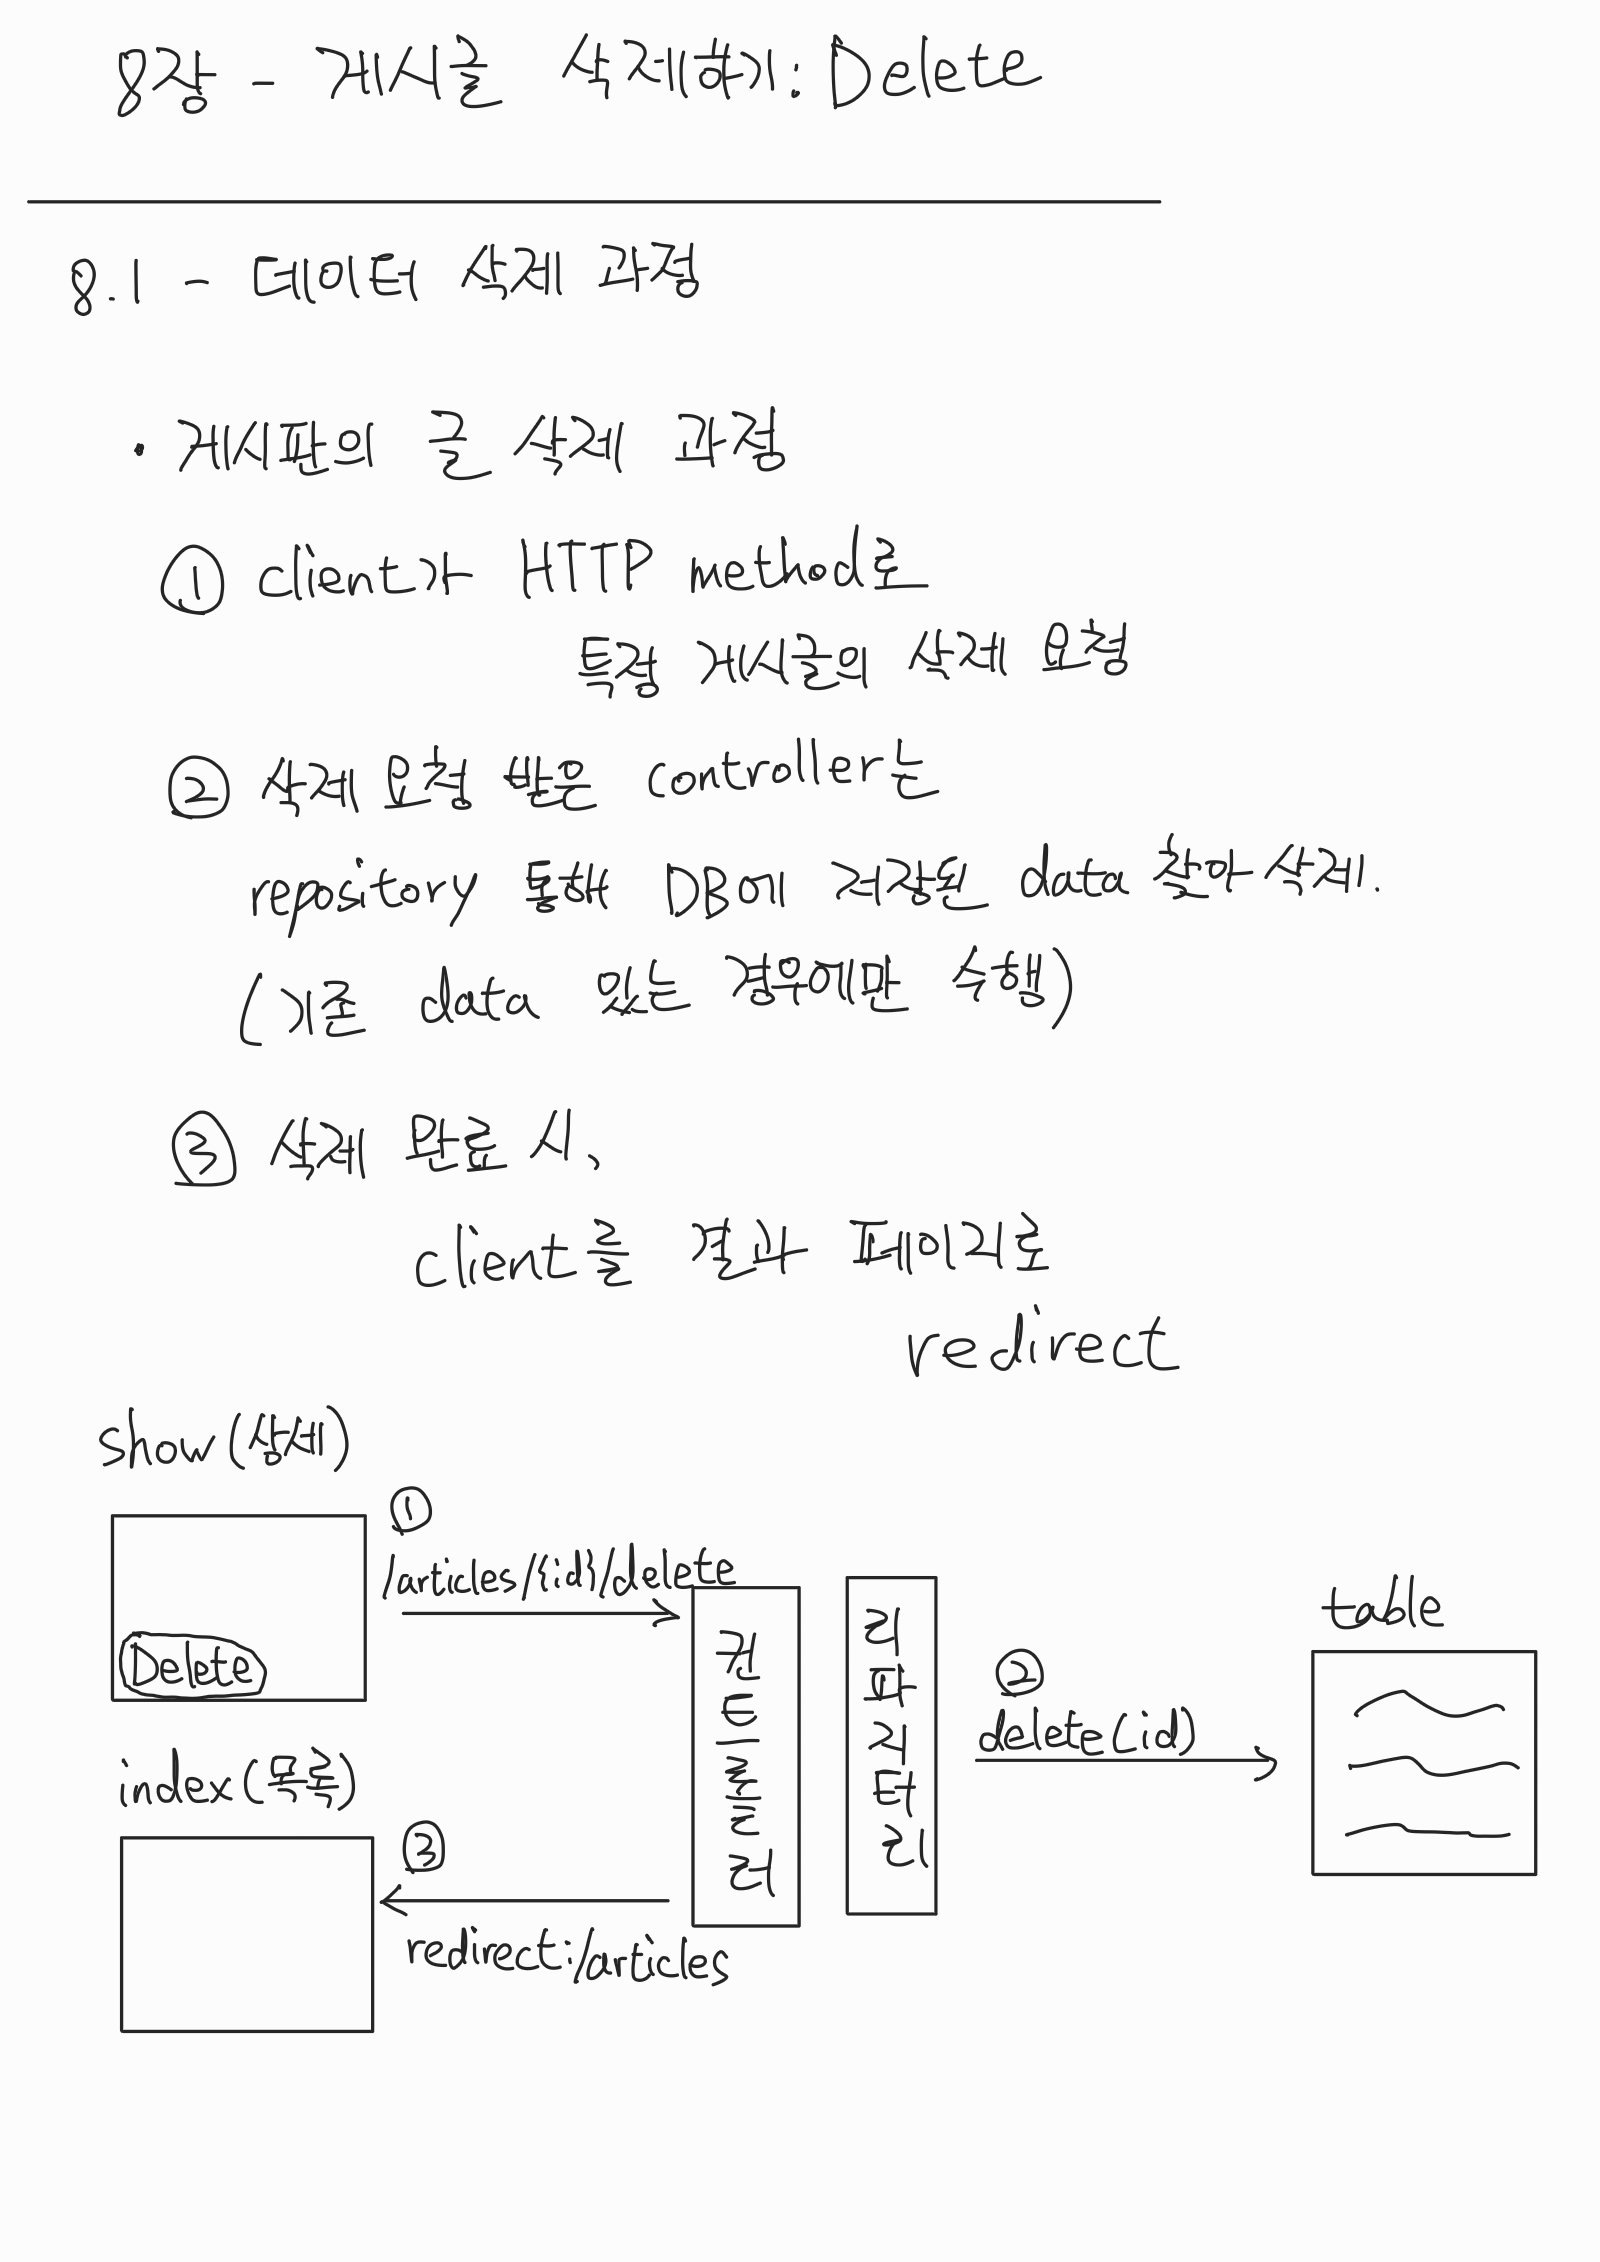 8장 - 게시글 삭제하기: Delete
8.1 - 데이터 삭제 과정
• 게시판의 글 삭제 과정
① client가 HTTP method로
특정 게시글의 삭제 요청
② 삭제 요청 받은 controller는
repository 통해 DB에 저장된 data 찾아 삭제.
(기존 data 있는 경우에만 수행)
③ 삭제 완료 시,
client를 결과 페이지로
redirect
show(상세)
①
/articles/{id}/delete
Delete
컨트롤러
리파지터리
②
delete(id)
table
index(목록)
③
redirect:/articles